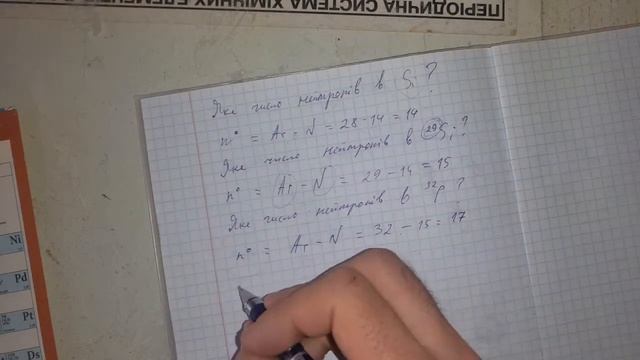 ПЕРІОДИЧНА СИСТЕМА ХІМІЧНИХ ЕЛЕМЕН
Яке число нейтронів в Si?
n° = Ar - N = 28 - 14 = 14
Яке число нейтронів в ²⁹Si?
n° = Ar - N = 29 - 14 = 15
Яке число нейтронів в ³²P?
n° = Ar - N = 32 - 15 = 17
Ni
Pd
Pt
Ds